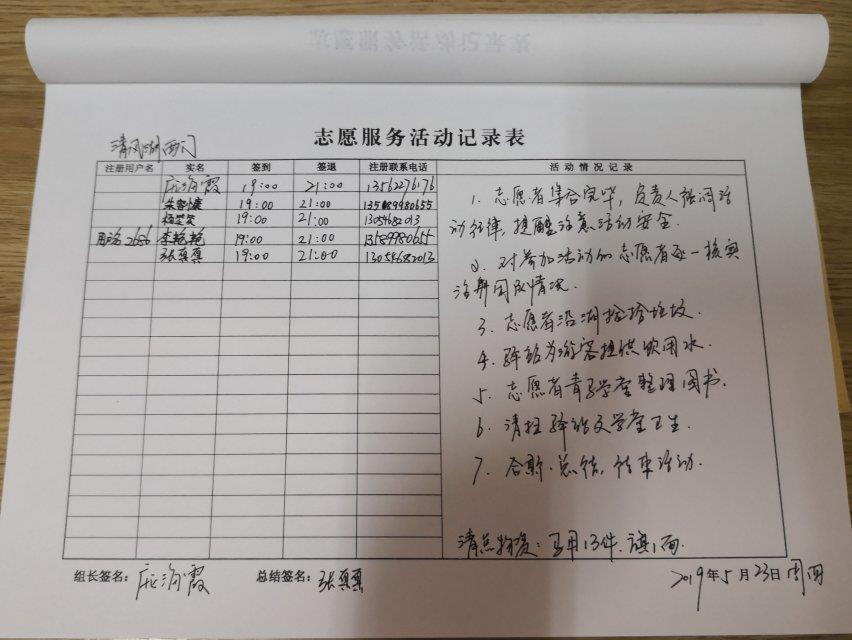 志愿服务活动记录表
清风湖西门
注册用户名 实名 签到 签退 注册联系电话 活动情况记录
19:00 21:00 13562276176
19:00 21:00 13589980655
19:00 21:00 13054682013
2686 李艳艳 19:00 21:00 13589980655
张真真 19:00 21:00 13054682013
1. 志愿者集合完毕,负责人强调活
动纪律,提醒注意活动安全.
2. 对参加活动的志愿者逐一核实
注册国民情况.
3. 志愿者沿湖捡拾垃圾.
4. 驿站为游客提供饮用水.
5. 志愿者青马学堂整理图书.
6. 清扫驿站及学堂卫生.
7. 合影.总结,结束活动.
清点物资:马甲13件.旗1面.
组长签名: 总结签名: 张真真
2019年5月23日周四